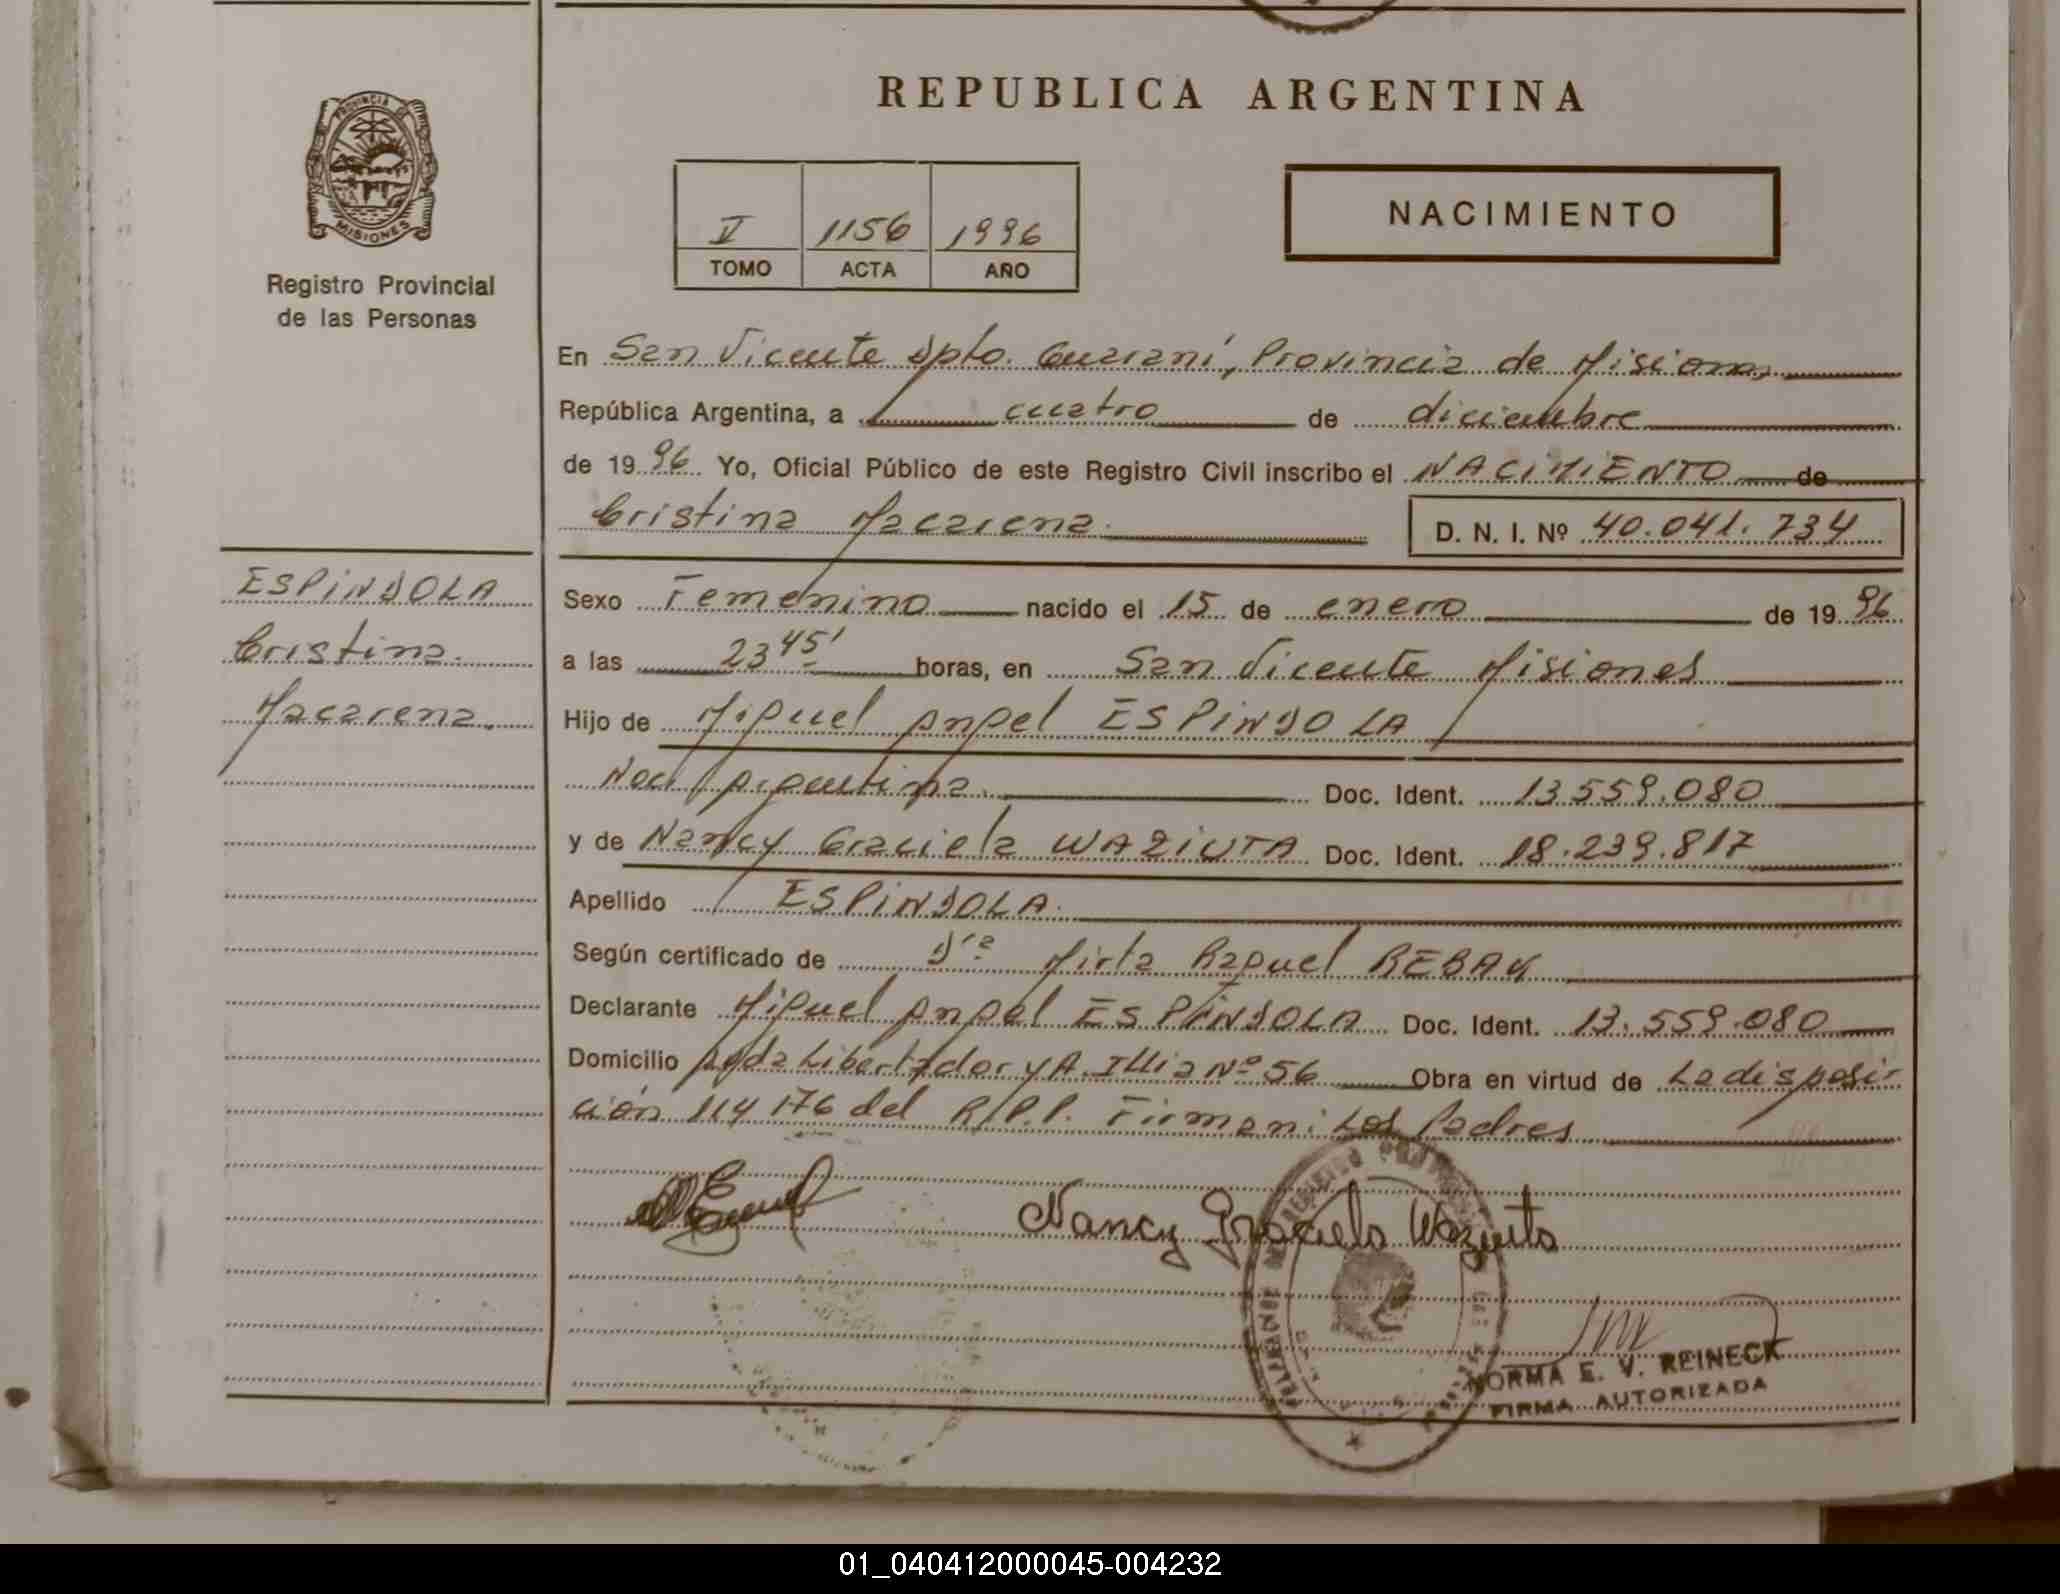 REPUBLICA ARGENTINA
PROVINCIA DE
MISIONES
Registro Provincial
de las Personas
V 1156 1996
TOMO ACTA AÑO
NACIMIENTO
En San Vicente Dpto. Guaraní, Provincia de Misiones
República Argentina, a cuatro de diciembre
de 1996 Yo, Oficial Público de este Registro Civil inscribo el NACIMIENTO de
Cristina Macarena. D. N. I. Nº 40.041.734
ESPINDOLA
Cristina
Macarena.
Sexo Femenino nacido el 15 de enero de 1996
a las 23 45' horas, en San Vicente Misiones
Hijo de Miguel Angel ESPINDOLA
Nac. Argentina. Doc. Ident. 13.559.080
y de Nancy Graciela WAZIUTA Doc. Ident. 18.239.817
Apellido ESPINDOLA
Según certificado de Dra Mirta Raquel REBAK
Declarante Miguel Angel ESPINDOLA Doc. Ident. 13.559.080
Domicilio Avda Libertador y A. Illia Nº 56 Obra en virtud de La disposi-
ción 114/76 del R.P.P. Firman: Los Padres
Nancy Graciela Waziuta
NORMA E. V. REINECK
FIRMA AUTORIZADA
01_040412000045-004232